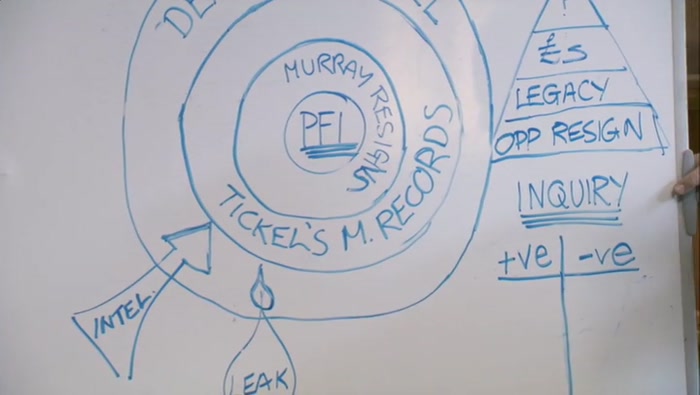 MURRAY RESIGNS
PFI
TICKEL'S M. RECORDS
INTEL.
LEAK
£s
LEGACY
OPP RESIGN
INQUIRY
+ve -ve